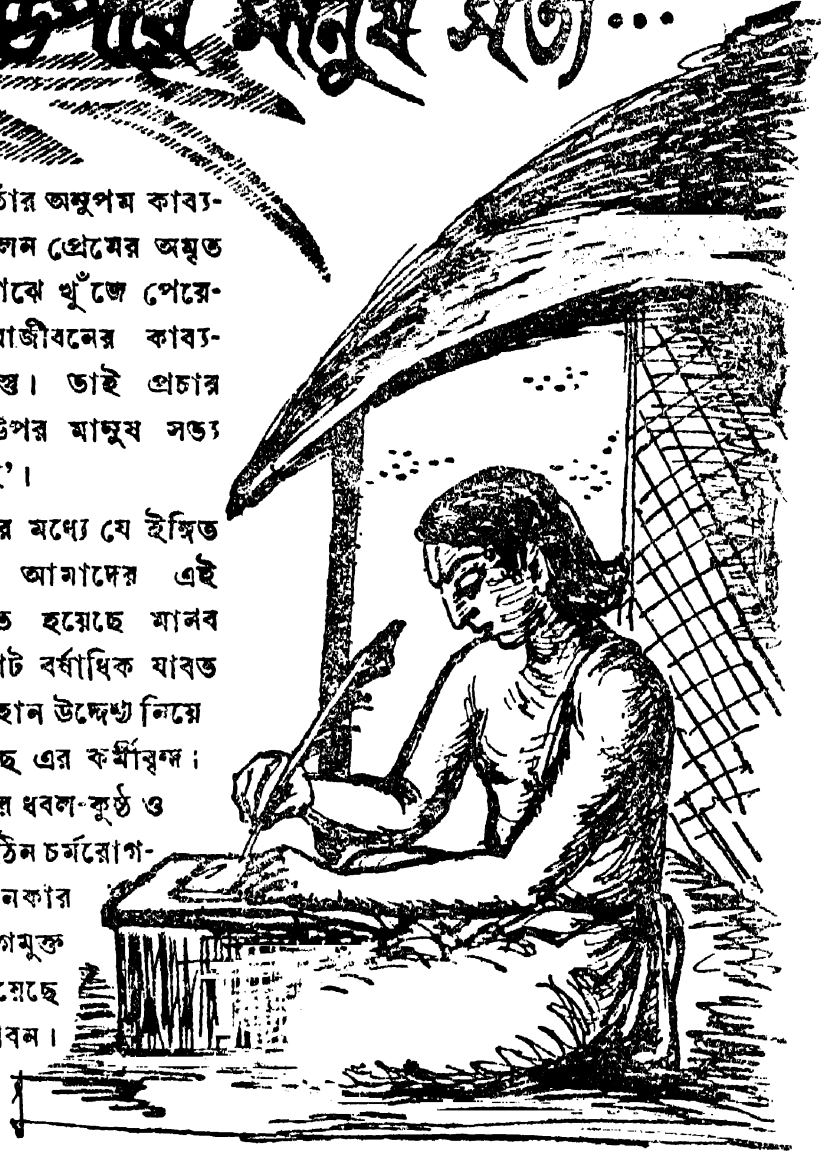 উপরে মানুষ সত্য...
তাঁর অনুপম কাব্য-
লেন প্রেমের অমৃত
মাঝে খুঁজে পেয়ে-
কাব্য-
তাই প্রচার
উপর মানুষ সত্য
র মধ্যে যে ইঙ্গিত
আমাদের এই
ত হয়েছে মানব
বর্ষাধিক যাবত
উদ্দেশ্য নিয়ে
ছে এর কর্মীবৃন্দ।
ধবল-কুষ্ঠ ও
ঠিন চর্মরোগ-
নকার
গমুক্ত
য়েছে
বন।